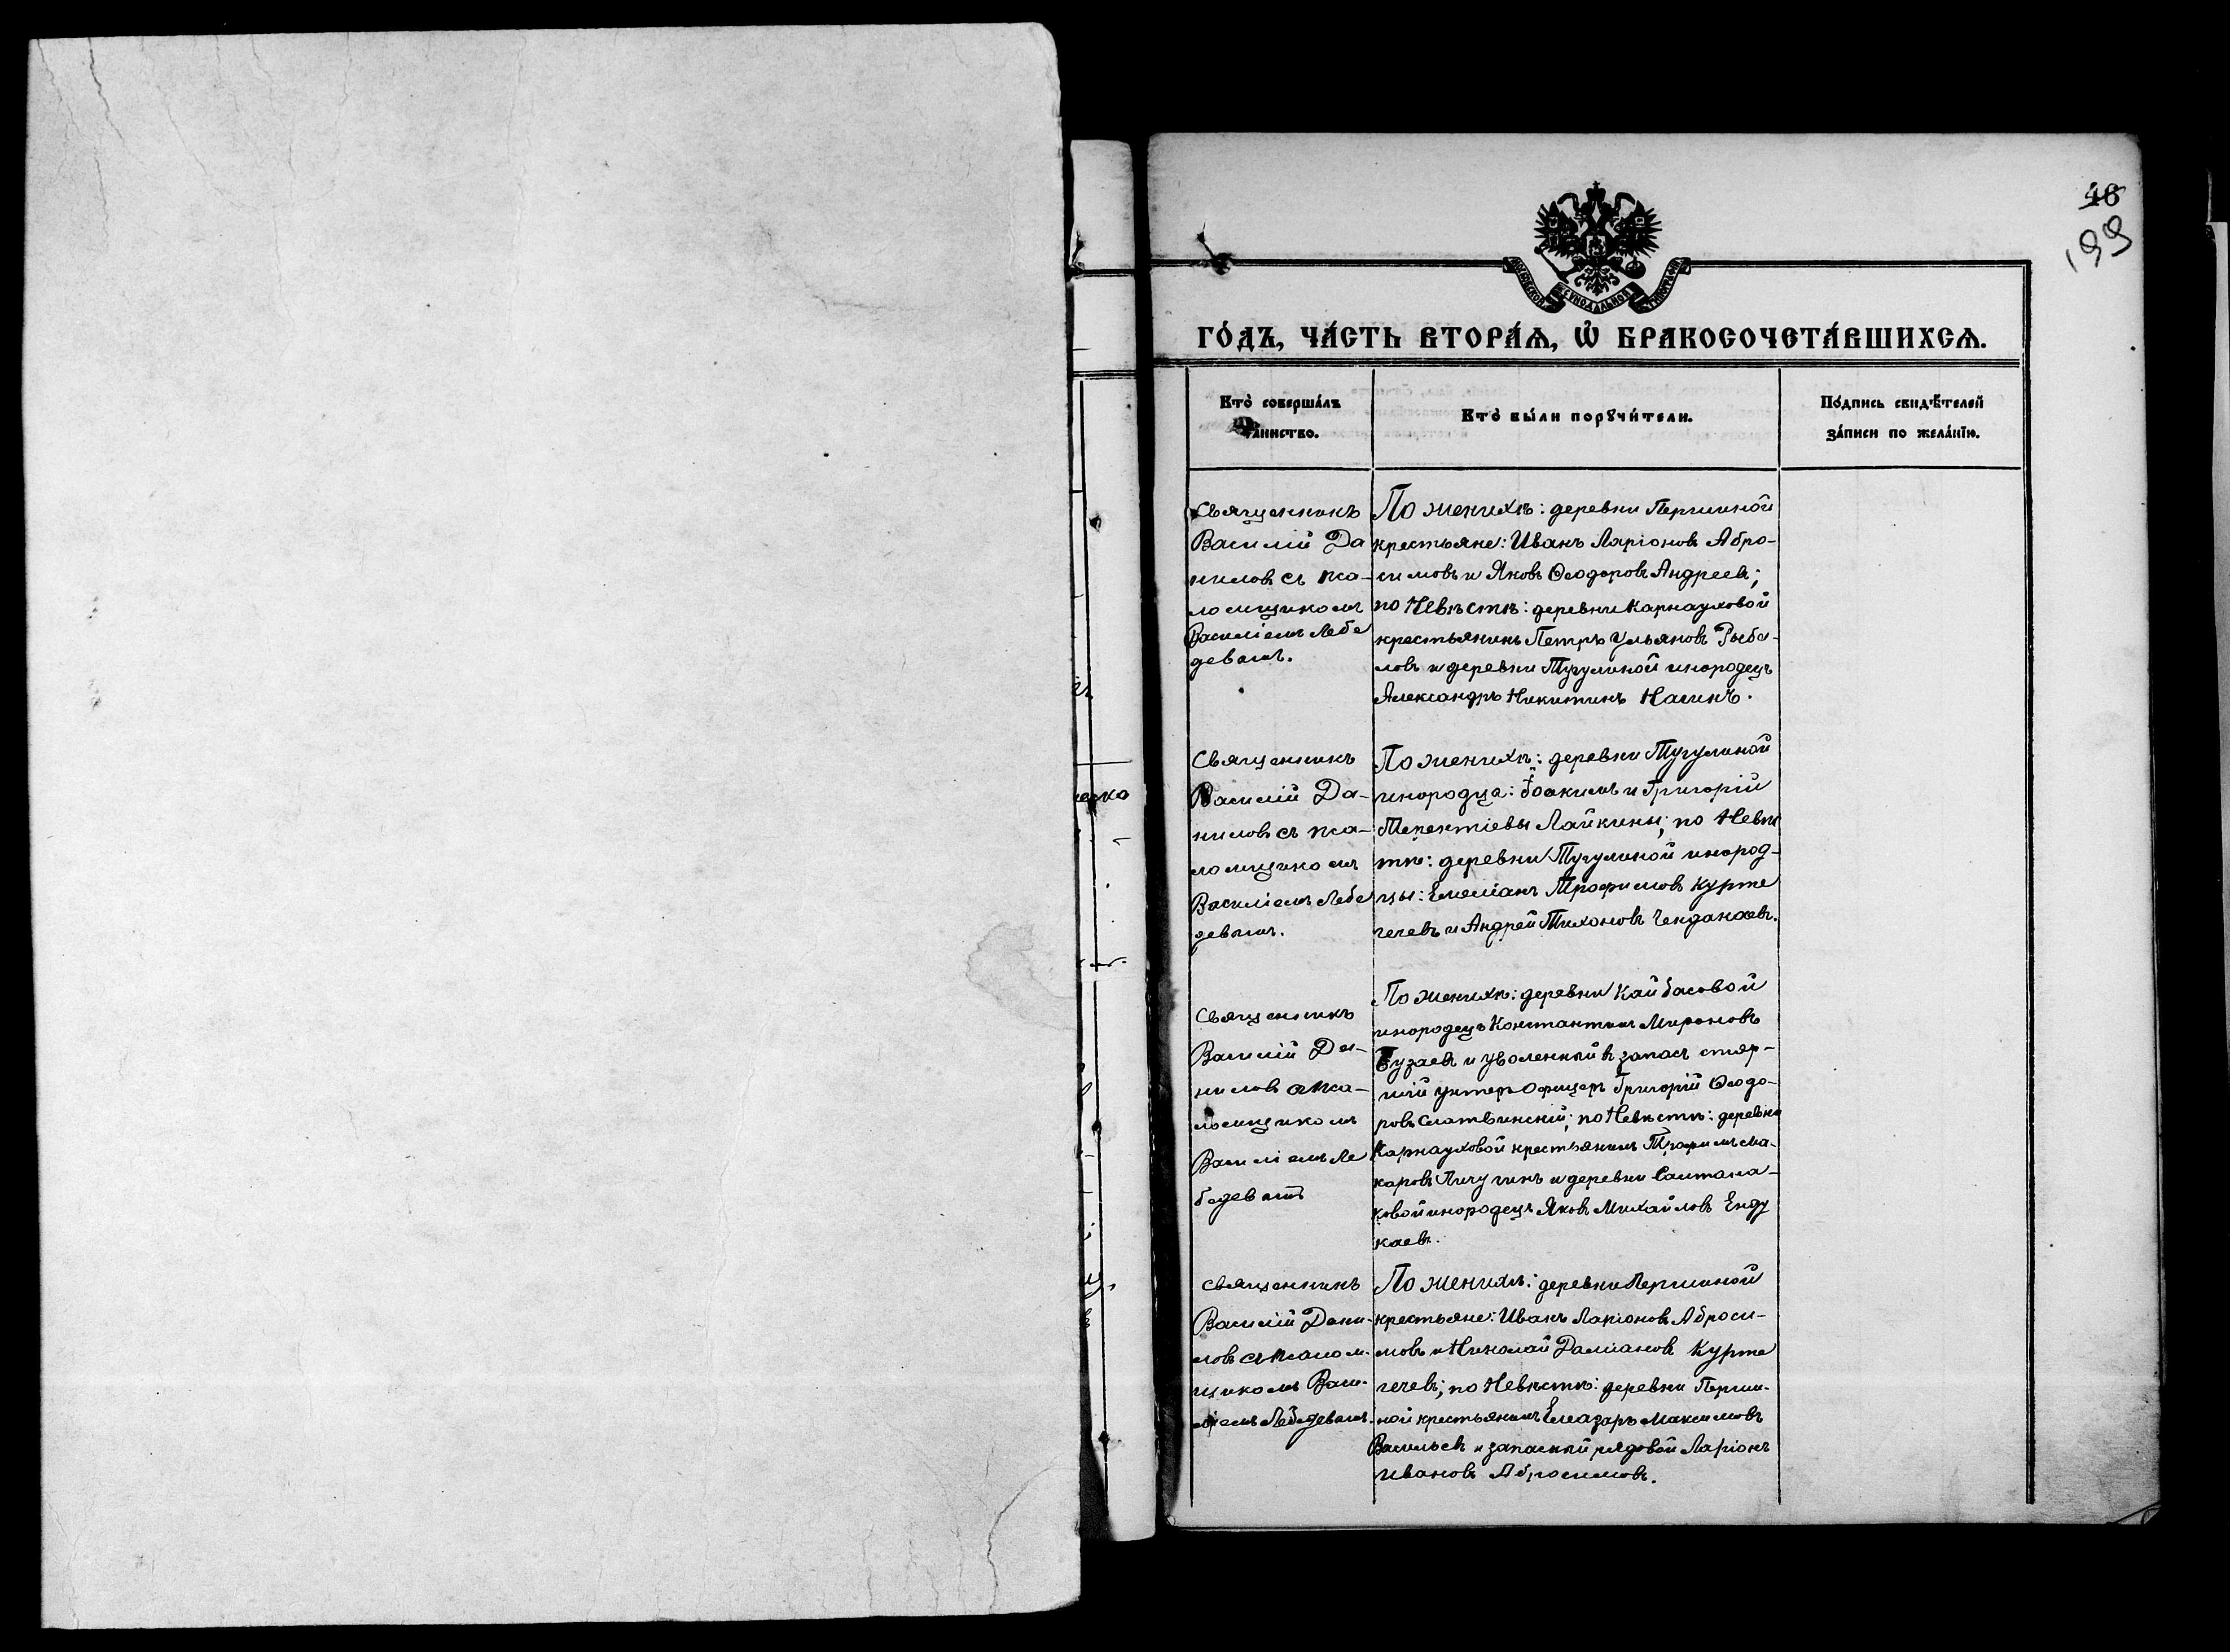 46
199
МОСКОВСКОЙ СѴНОДАЛЬНОЙ ТИПОГРАФІИ
ГО́ДЪ, ЧА́СТЬ ВТОРА́Ѧ, Ѽ БРАКОСОЧЕТА́ВШИХСѦ.
Кто̀ соверша́лъ
таинство.
Кто̀ бы́ли порꙋчи́тели.
По́дпись свидѣ́телей
за́писи по жела́нїю.
Священникъ
Василій Да
ниловъ съ пса-
ломщикомъ
Василіемъ Лебе
девымъ.
По женихѣ: деревни Першиной
крестьяне: Иванъ Ларіоновъ Абро-
симовъ и Яковъ Ѳеодоровъ Андреевъ;
по Невѣстѣ: деревни Карнауховой
крестьянинъ Петръ Ульяновъ Рыба-
ловъ и деревни Тугулиной инородецъ
Александръ Никитинъ Насинъ.
Священникъ
Василій Да-
ниловъ съ пса-
ломщикомъ
Василіемъ Лебе
девымъ.
По женихѣ: деревни Тугулиной
инородца: Іоакимъ и Григорій
Терентіевы Лайкины; по Невѣс
тѣ: деревни Тугулиной инород-
цы: Емеліанъ Трофимовъ Курте
гечевъ и Андрей Тихоновъ Чендановъ.
Священникъ
Василій Да-
ниловъ съ пса-
ломщикомъ
Василіемъ Ле
бедевымъ
По женихѣ: деревни Кайбасовой
инородецъ Константинъ Мироновъ
Бузаевъ и уволенный въ запасъ стар-
шій унтеръ офицеръ Григорій Ѳеодо-
ровъ Слатвинскій; по Невѣстѣ: деревни
Карнауховой крестьянинъ Трофимъ Ма-
каровъ Пичугинъ и деревни Салтана-
ковой инородецъ Яковъ Михайловъ Енду
каевъ.
Священникъ
Василій Дани-
ловъ съ псалом-
щикомъ Васи-
ліемъ Лебедевымъ.
По женихѣ: деревни Першиной
крестьяне: Иванъ Ларіоновъ Аброси-
мовъ и Николай Даміановъ Курте
гечевъ; по Невѣстѣ: деревни Перши-
ной крестьянинъ Елеазаръ Максимовъ
Васильевъ и запасный рядовой Ларіонъ
Ивановъ Абросимовъ.